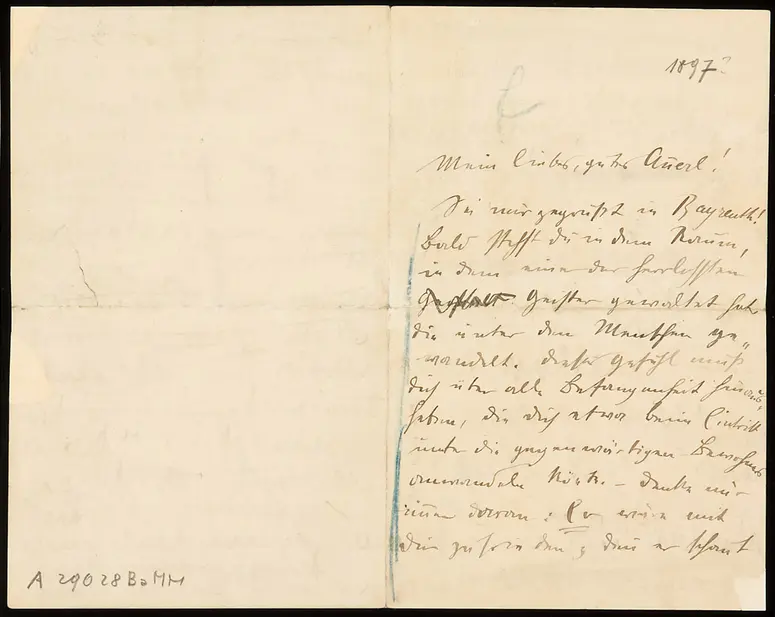 1897?
Mein liebes, gutes Auerl!
Sei mir gegrüßt in Bayreuth!
Bald stehst du in dem Raum,
in dem einer der herrlichsten
Geister gewaltet hat,
die unter den Menschen ge„
wandelt. Dieses Gefühl muß
dich über alle Befangenheit hinaus„
heben, die dich etwa beim Eintritt
unter die gegenwärtigen Bewohner
anwandeln könnte. – Denke nur
immer daran: Er wäre mit
dir zufrieden, denn er schaut
A 29028 BaMH